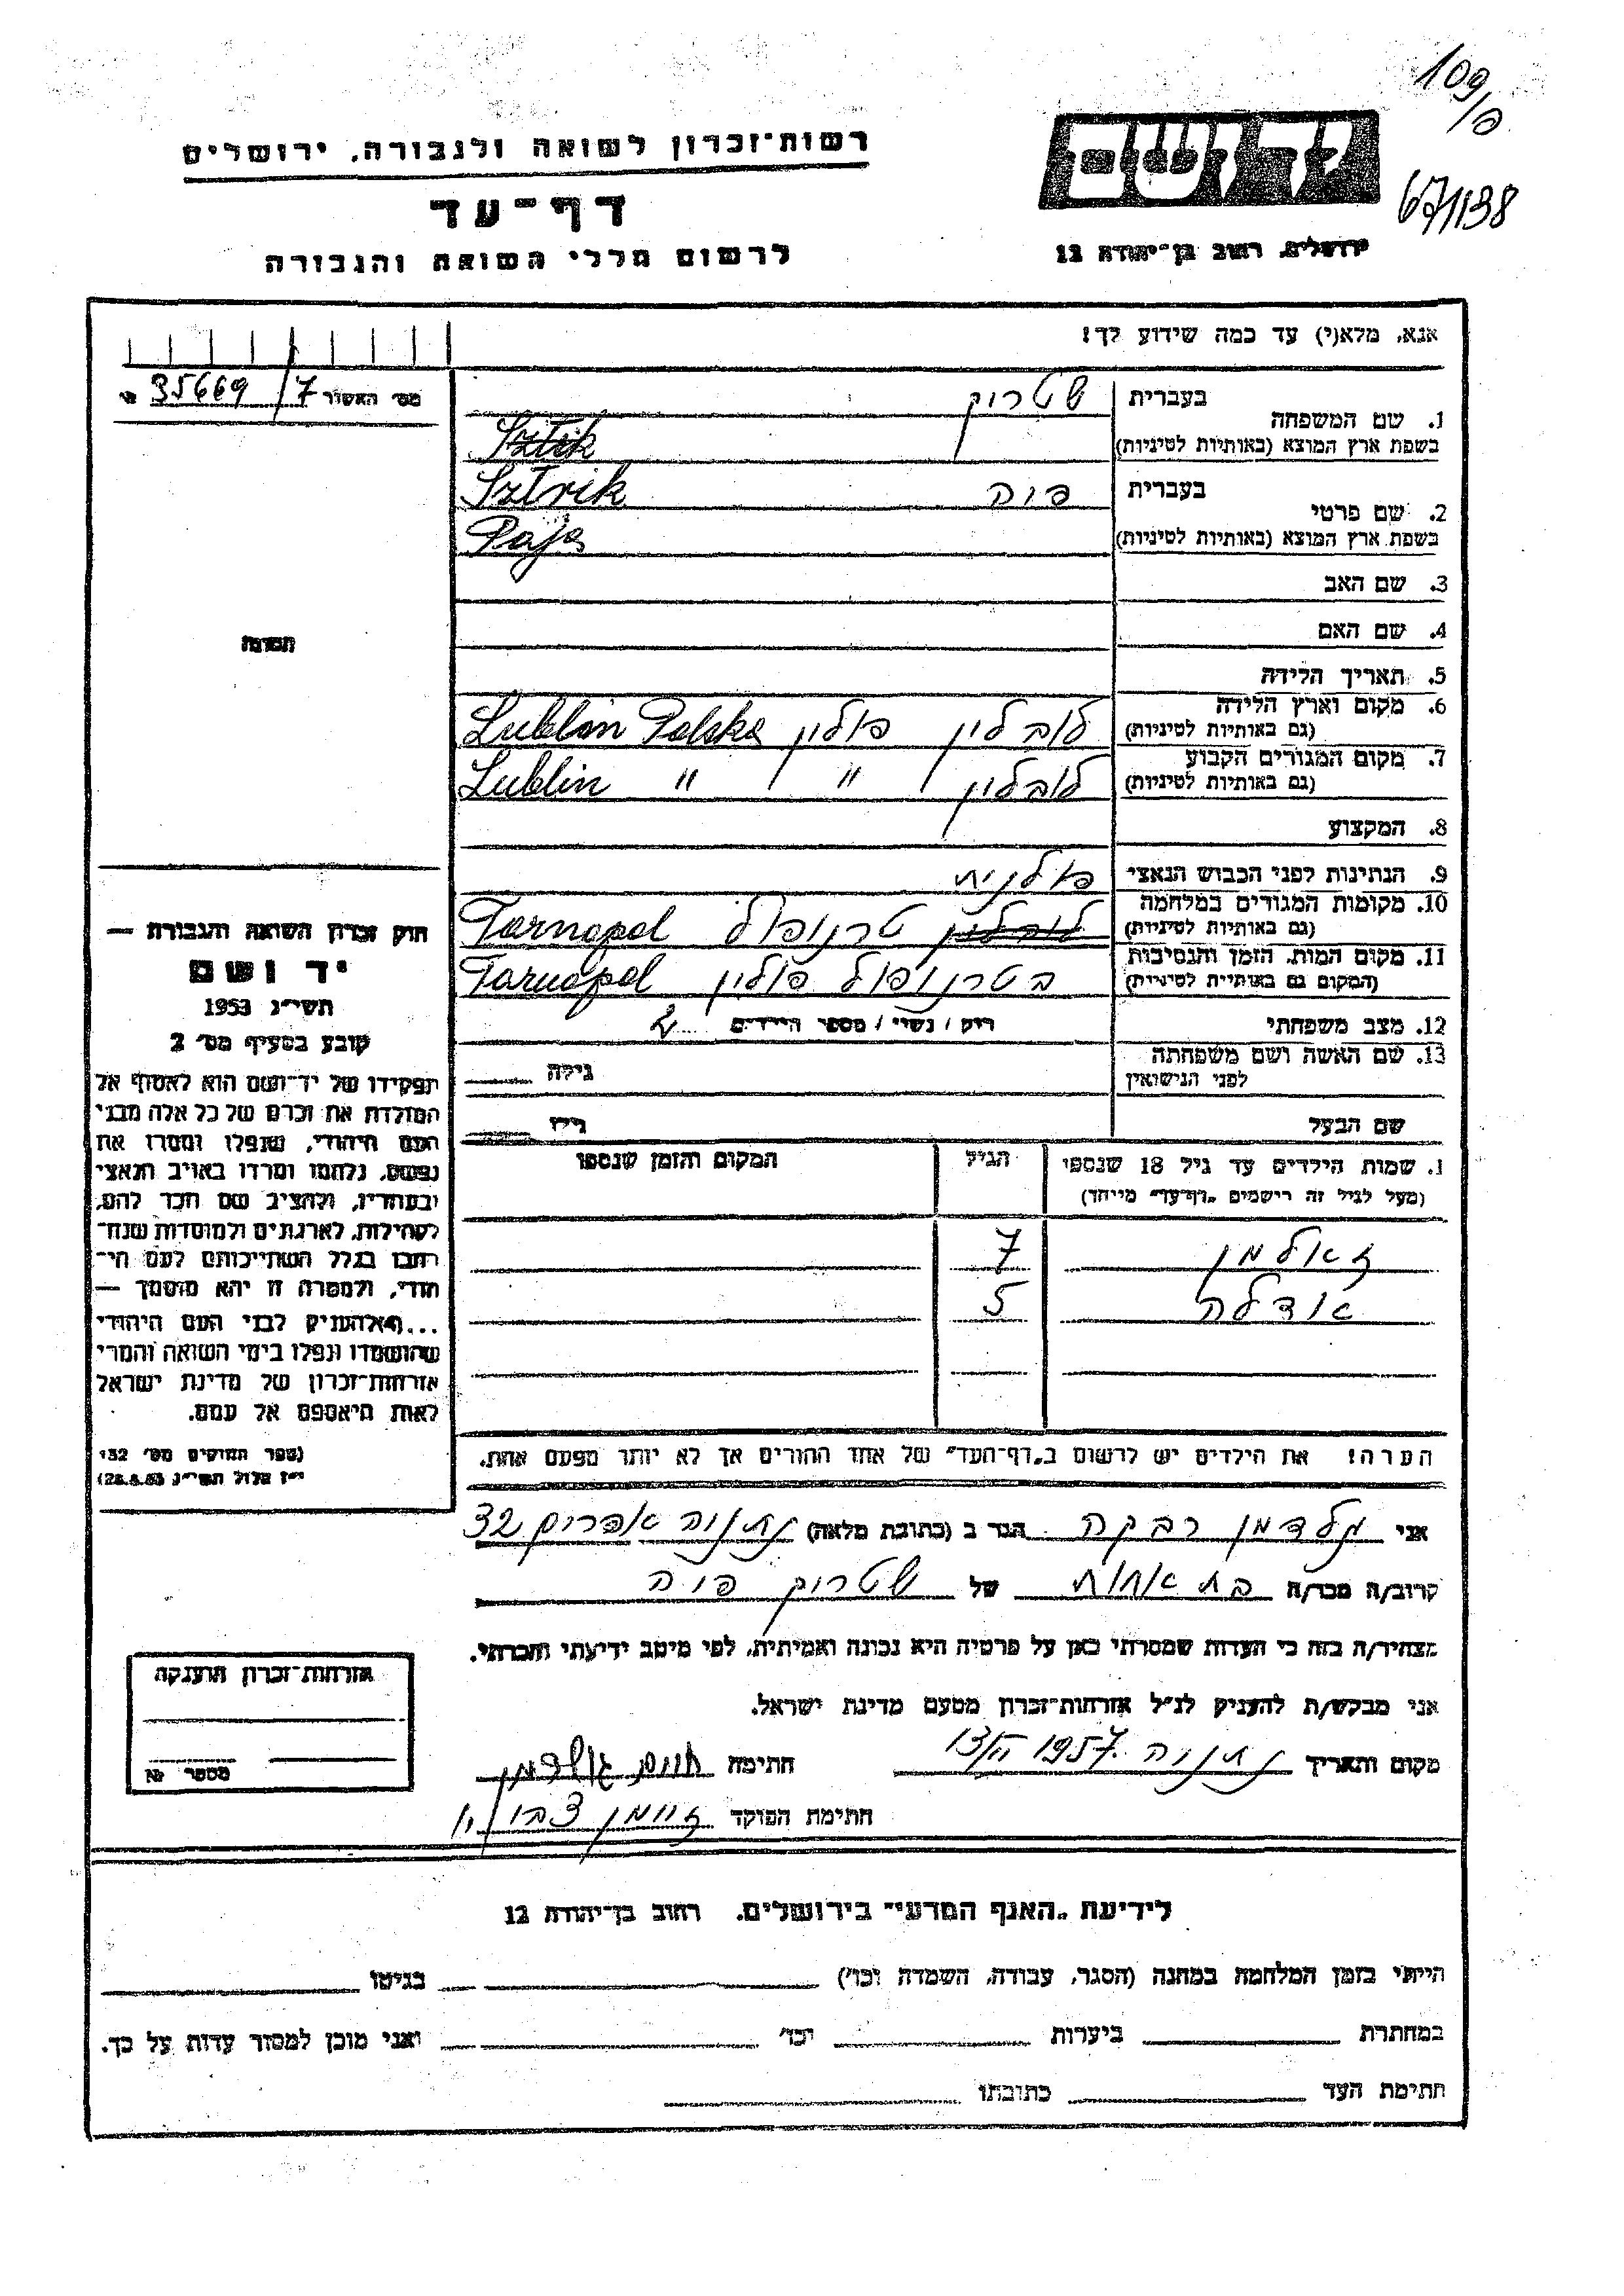 109/פ
67/1138
יד ושם
ירושלים, רחוב בן־יהודה 12
רשות־זכרון לשואה ולגבורה, ירושלים
דף־עד
לרשום חללי השואה והגבורה
אנא, מלא(י) עד כמה שידוע לך!
מס׳ האשור 7/35669
1. שם המשפחה בעברית שטריק
בשפת ארץ המוצא (באותיות לטיניות) Sztrik
Sztrik
2. שם פרטי בעברית פיה
בשפת ארץ המוצא (באותיות לטיניות) Paja
3. שם האב
4. שם האם
5. תאריך הלידה
6. מקום וארץ הלידה לובלין פולין Lublin Polska
(גם באותיות לטיניות)
7. מקום המגורים הקבוע לובלין " Lublin "
(גם באותיות לטיניות)
8. המקצוע
9. הנתינות לפני הכבוש הנאצי פולנית
10. מקומות המגורים במלחמה לובלין טרנופול Tarnopol
(גם באותיות לטיניות)
11. מקום המות, הזמן והנסיבות בטרנופול פולין Tarnopol
(המקום גם באותיות לטיניות)
12. מצב משפחתי רוק / נשוי / מספר הילדים 2
13. שם האשה ושם משפחתה
לפני הנישואין גילה
שם הבעל גילו
1. שמות הילדים עד גיל 18 שנספו הגיל המקום והזמן שנספו
(מעל לגיל זה רישמים „דף־עד" מייחד)
זאלמן 7
אדלה 5
הערה! את הילדים יש לרשום ב„דף־העד" של אחד ההורים אך לא יותר מפעם אחת.
התמונה
חוק זכרון השואה והגבורה —
יד ושם
תשי״ג 1953
קובע בסעיף מס׳ 2
תפקידו של יד־ושם הוא לאסוף אל
המולדת את זכרם של כל אלה מבני
העם היהודי, שנפלו ומסרו את
נפשם, נלחמו ומרדו באויב הנאצי
ובעוזריו, ולהציב שם וזכר להם,
לקהילות, לארגונים ולמוסדות שנח־
רבו בגלל השתייכותם לעם הי־
הודי, ולמטרה זו יהא מוסמך —
...להעניק לבני העם היהודי
שהושמדו ונפלו בימי השואה והמרי
אזרחות־זכרון של מדינת ישראל
לאות היאספם אל עמם.
(ספר החוקים מס׳ 132
י״ז אלול תשי״ג 28.8.53)
אני גולדמן רבקה הגר ב (כתובת מלאה) נתניה אפרים 32
קרוב/ה מכר/ה בת אחות של שטריק פיה
מצהיר/ה בזה כי העדות שמסרתי כאן על פרטיה היא נכונה ואמיתית, לפי מיטב ידיעתי והכרתי.
אני מבקש/ת להעניק לנ״ל אזרחות־זכרון מטעם מדינת ישראל.
מקום ותאריך נתניה 1957 חתימה גולדמן
חתימת הפוקד
אזרחות־זכרון הוענקה
מספר №
לידיעת „האגף המדעי" בירושלים, רחוב בן־יהודה 12
הייתי בזמן המלחמה במחנה (הסגר, עבודה, השמדה וכו׳) בגיטו
במחתרת ביערות וכו׳ ואני מוכן למסור עדות על כך.
חתימת העד כתובתו